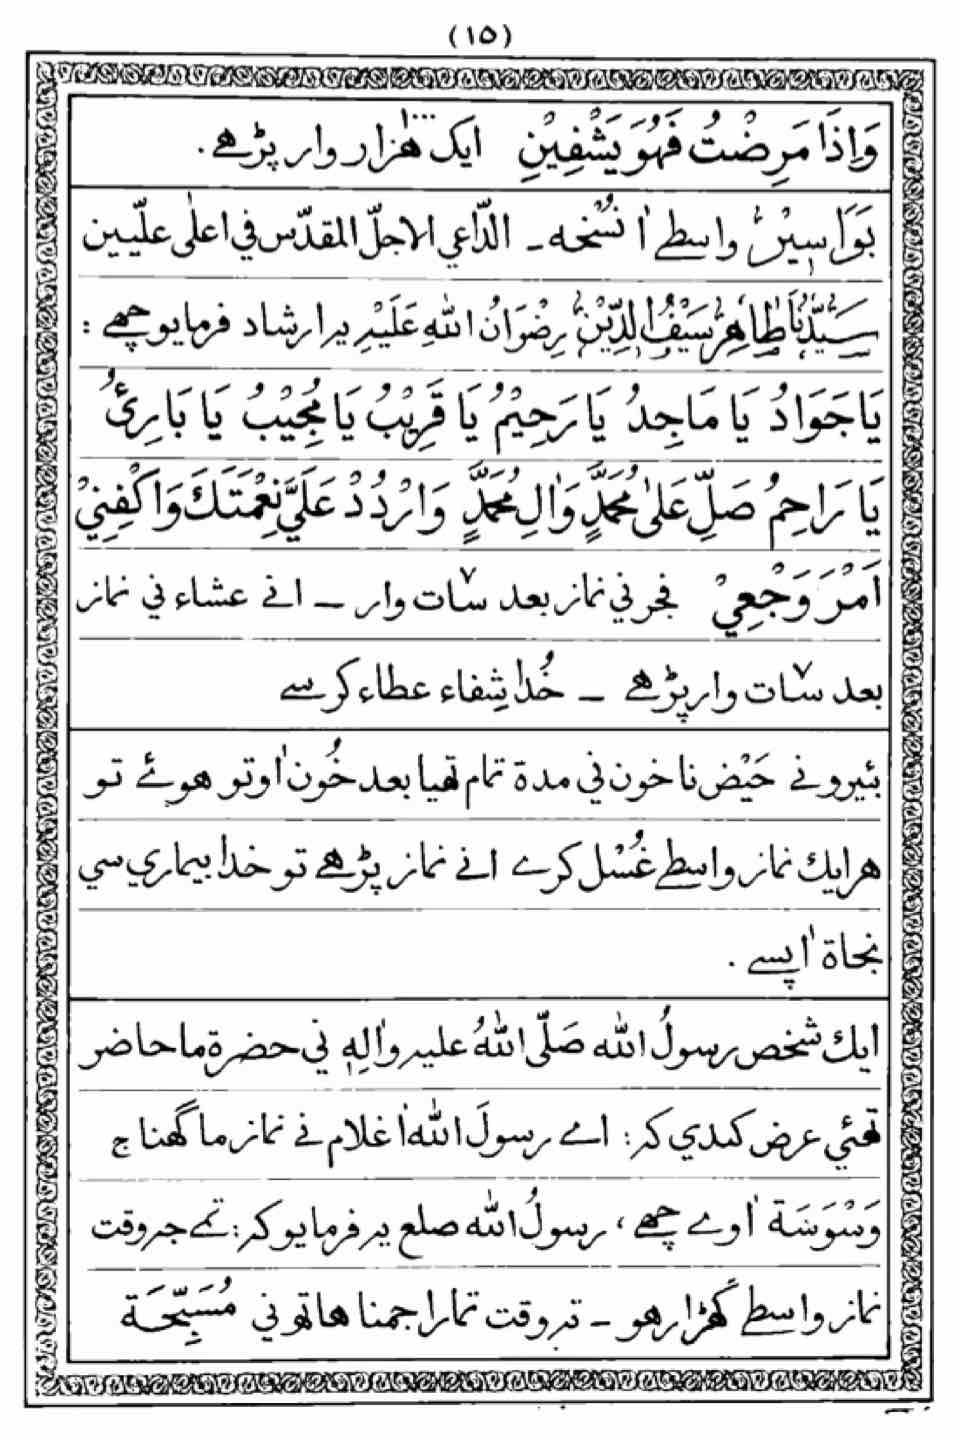 (١٥)
وَاِذَا مَرِضْتُ فَهُوَ يَشْفِيْنِ ايك هزار وار پڑهے.
بَوَاسِيْر واسطے اٰ نُسْخه ـ الدّاعي الاجلّ المقدّس في اعلى علّيين
سَيِّدْنَا طَاهِرْ سَيْفُ الدِّيْنْ رِضْوَانُ اللهِ عَلَيْهِ يہ ارشاد فرمايو چهے :
يَا جَوَادُ يَا مَاجِدُ يَا رَحِيْمُ يَا قَرِيْبُ يَا مُجِيْبُ يَا بَارِئُ
يَا رَاحِمُ صَلِّ عَلٰى مُحَمَّدٍ وَاٰلِ مُحَمَّدٍ وَارْدُدْ عَلَيَّ نِعْمَتَكَ وَاكْفِنِيْ
اَمْرَ وَجْعِيْ فجر ني نماز بعد ٧ سات وار ـ انے عشاء ني نماز
بعد ٧ سات وار پڑهے ـ خُدا شِفاء عطاء كرسے
بئيرو نے حَيْض نا خون ني مدة تمام تهيا بعد خُون اٰوتو هوئے تو
هر ايك نماز واسطے غُسْل كرے انے نماز پڑهے تو خدا بيماري سي
نجاة اٰپسے .
ايك شخص رسولُ الله صَلَّى اللهُ عليه واٰلِهِ ني حضرة ما حاضر
تهئي عرض كيدي كہ : اے رسولَ الله اٰ غلام نے نماز ما گهنا ج
وَسْوَسَة اٰوے چهے ، رسولُ الله صلع يہ فرمايو كہ : تمے جہ وقت
نماز واسطے كهڑا رهو ـ تہ وقت تمارا جمنا هاتهو ني مُسَبِّحَة